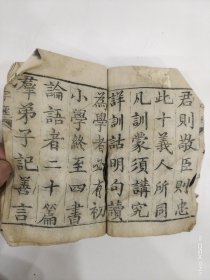 君則敬臣則忠
此十義人所同
凡訓蒙須講究
詳訓詁明句讀
為學者必有初
小學終至四書
論語者二十篇
羣弟子記善言